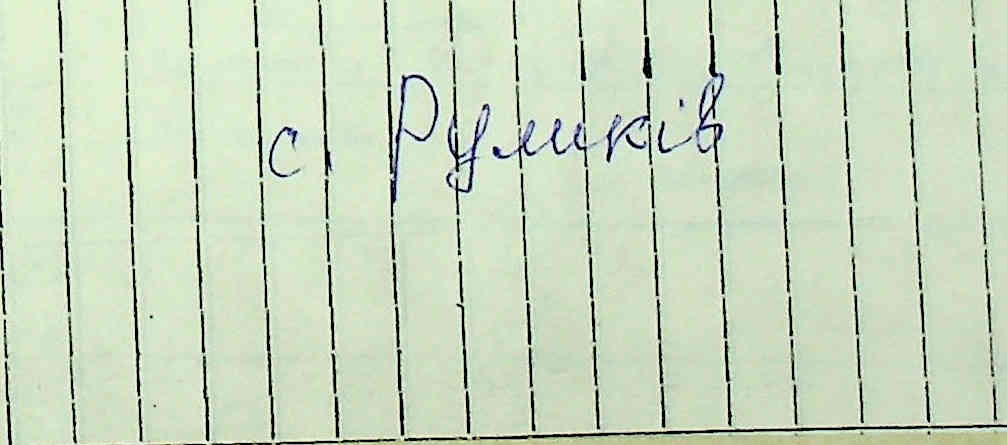 с. Румків